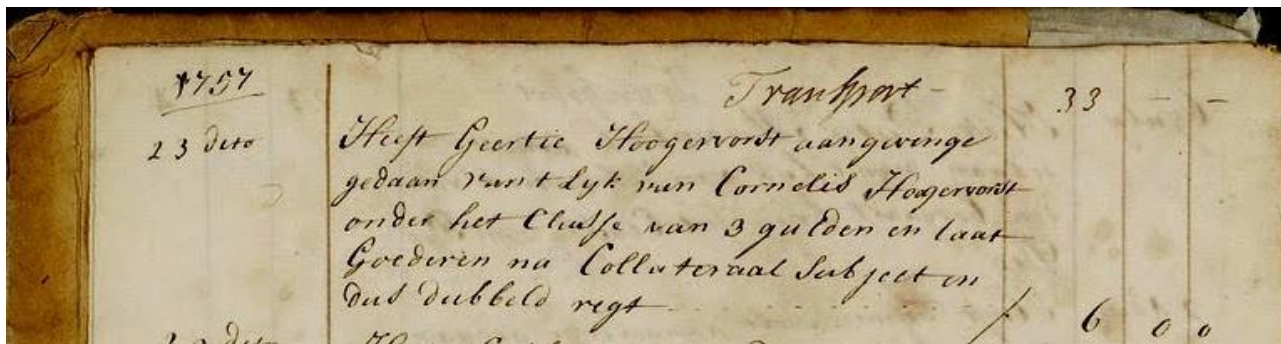 1757
Transport - 33 - -
23 dito Heeft Geertie Hoogervorst aangevinge
gedaan van t Lyk van Cornelis Hoogervorst
onder het Classe van 3 gulden en laat
Goederen na Collateraal Subject en
dus dubbeld regt / 6 0 0
dito